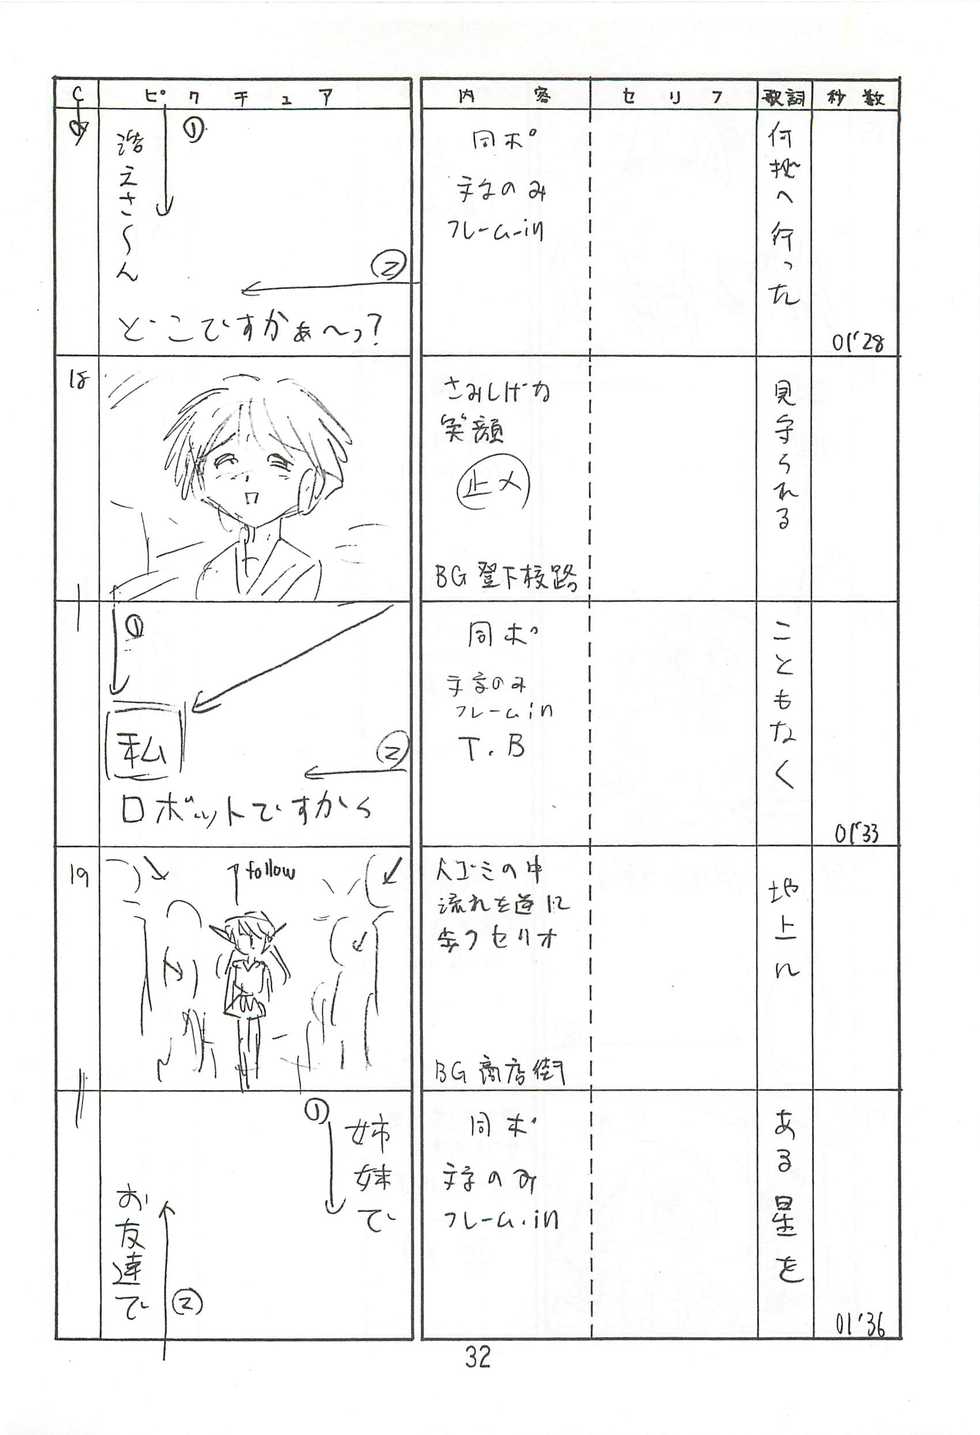 C ピクチュア 内容 セリフ 歌詞 秒数
①
浩えさ〜ん
②
どこですかぁ〜っ?
同ポ
文字のみ
フレーム-in
何拠へ行った
01'28
18
さみしげな
笑顔
止メ
BG 登下校路
見守られる
①
私
②
ロボットですから
同ポ
文字のみ
フレームin
T.B
こともなく
01'33
19
follow
人ゴミの中
流れを逆に
歩くセリオ
BG 商店街
地上に
①
姉妹で
お友達で
②
同ポ
文字のみ
フレーム・in
ある星を
01'36
32